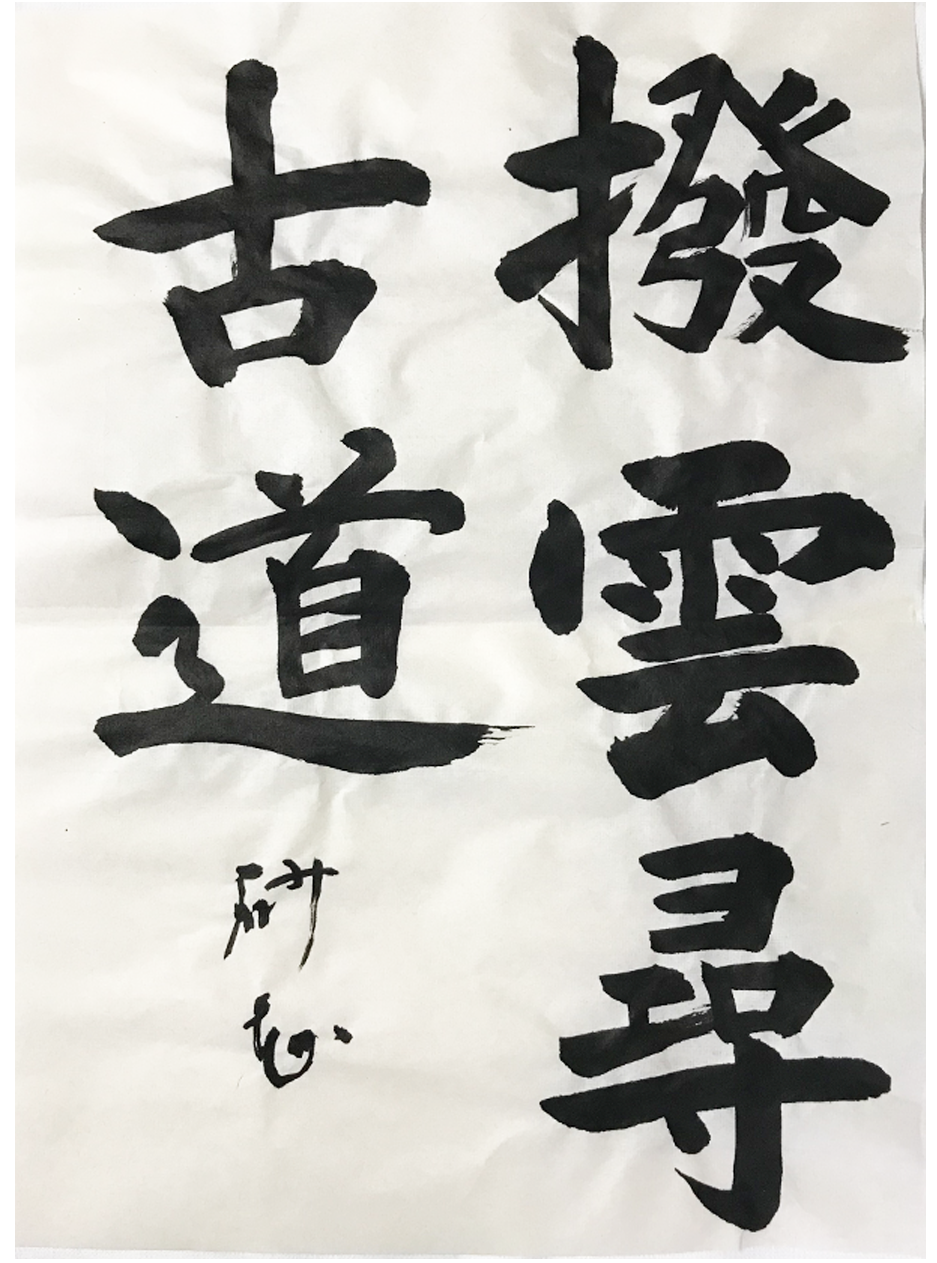 撥雲尋
古道
研志